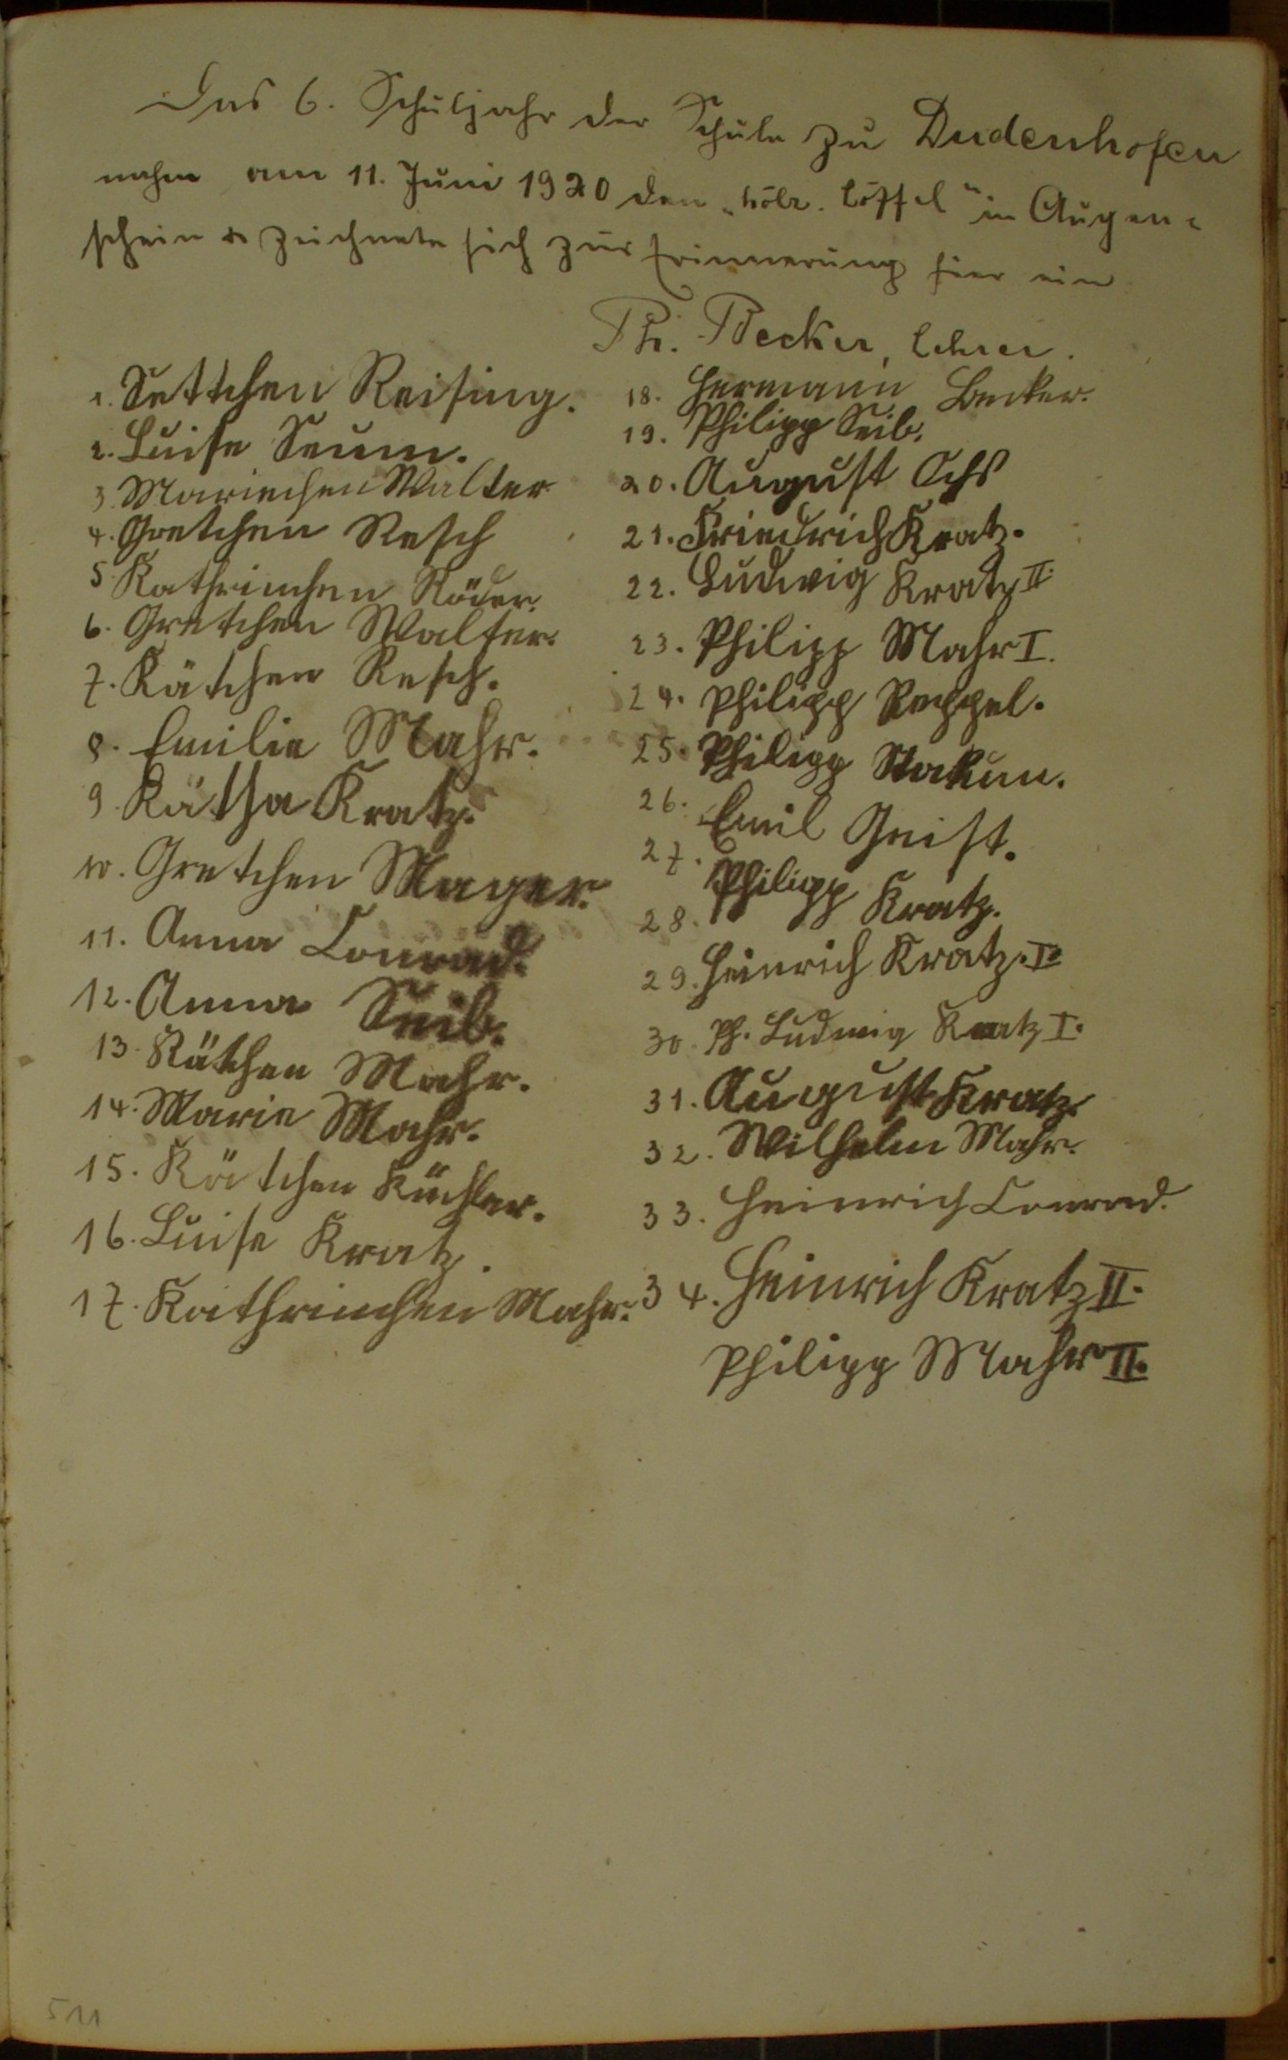 Das 6. Schuljahr der Schule zu Dudenhofen
nahm am 11. Juni 1920 den „hölz. Löffel“ in Augen-
schein & zeichnete sich zur Erinnerung hier ein
Ph. Becker, Lehrer.
1. Settchen Reising.
2. Luise Seum.
3. Mariechen Walter
4. Gretchen Resch
5 Kathrinchen Röder.
6. Gretchen Walter.
7. Kätchen Resch.
8. Emilie Mahr.
9. Kätha Kratz.
10. Gretchen Mager.
11. Anna Conrad.
12. Anna Seib.
13. Käthen Mahr.
14. Marie Mahr.
15. Kätchen Küchler.
16. Luise Kratz.
17. Kathrinchen Mahr.
18. Hermann Becker.
19. Philipp Seib.
20. August Ochs
21. Friedrich Kratz.
22. Ludwig Kratz II.
23. Philipp Mahr I.
24. Philipp Reppel.
25. Philipp
26. Emil Geist.
27.
28. Philipp Kratz.
29. Heinrich Kratz. I.
30. Ph. Ludwig Kratz I.
31. August Kratz.
32. Wilhelm Mahr.
33. Heinrich Conrad.
34. Heinrich Kratz II.
Philipp Mahr II.
511